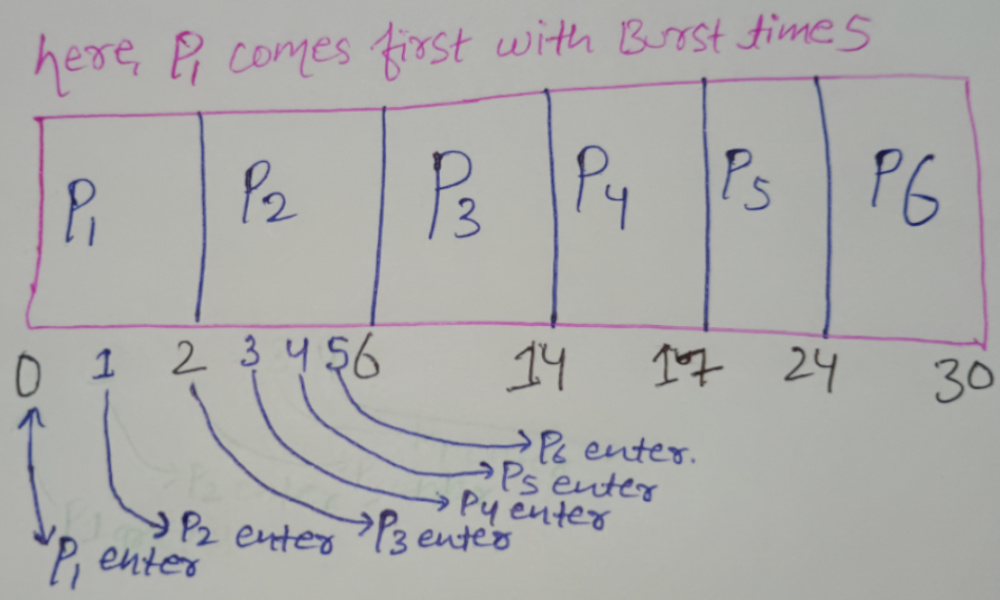 here, P1 comes first with Burst time 5
P1 P2 P3 P4 P5 P6
0 1 2 3 4 5 6 14 17 24 30
P6 enter.
P5 enter
P4 enter
P1 enter P2 enter P3 enter